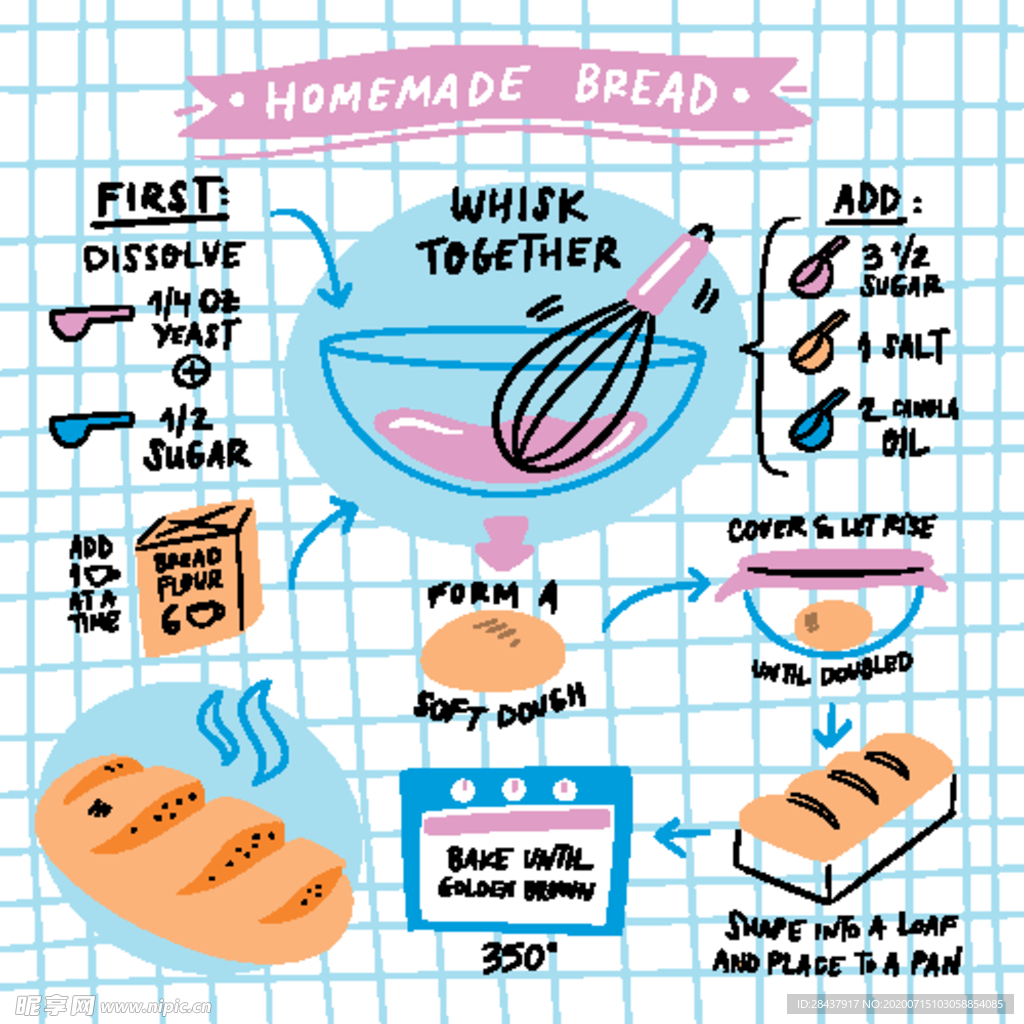 HOMEMADE BREAD
FIRST:
DISSOLVE
1/4 OZ
YEAST
+
1/2
SUGAR
WHISK
TOGETHER
ADD:
3 1/2
SUGAR
1 SALT
2 CANOLA
OIL
ADD
1
AT A
TIME
BREAD
FLOUR
6
FORM A
SOFT DOUGH
COVER & LET RISE
UNTIL DOUBLED
SHAPE INTO A LOAF
AND PLACE TO A PAN
BAKE UNTIL
GOLDEN BROWN
350°
昵享网 www.nipic.cn
ID:28437917 NO:20200715103058854085